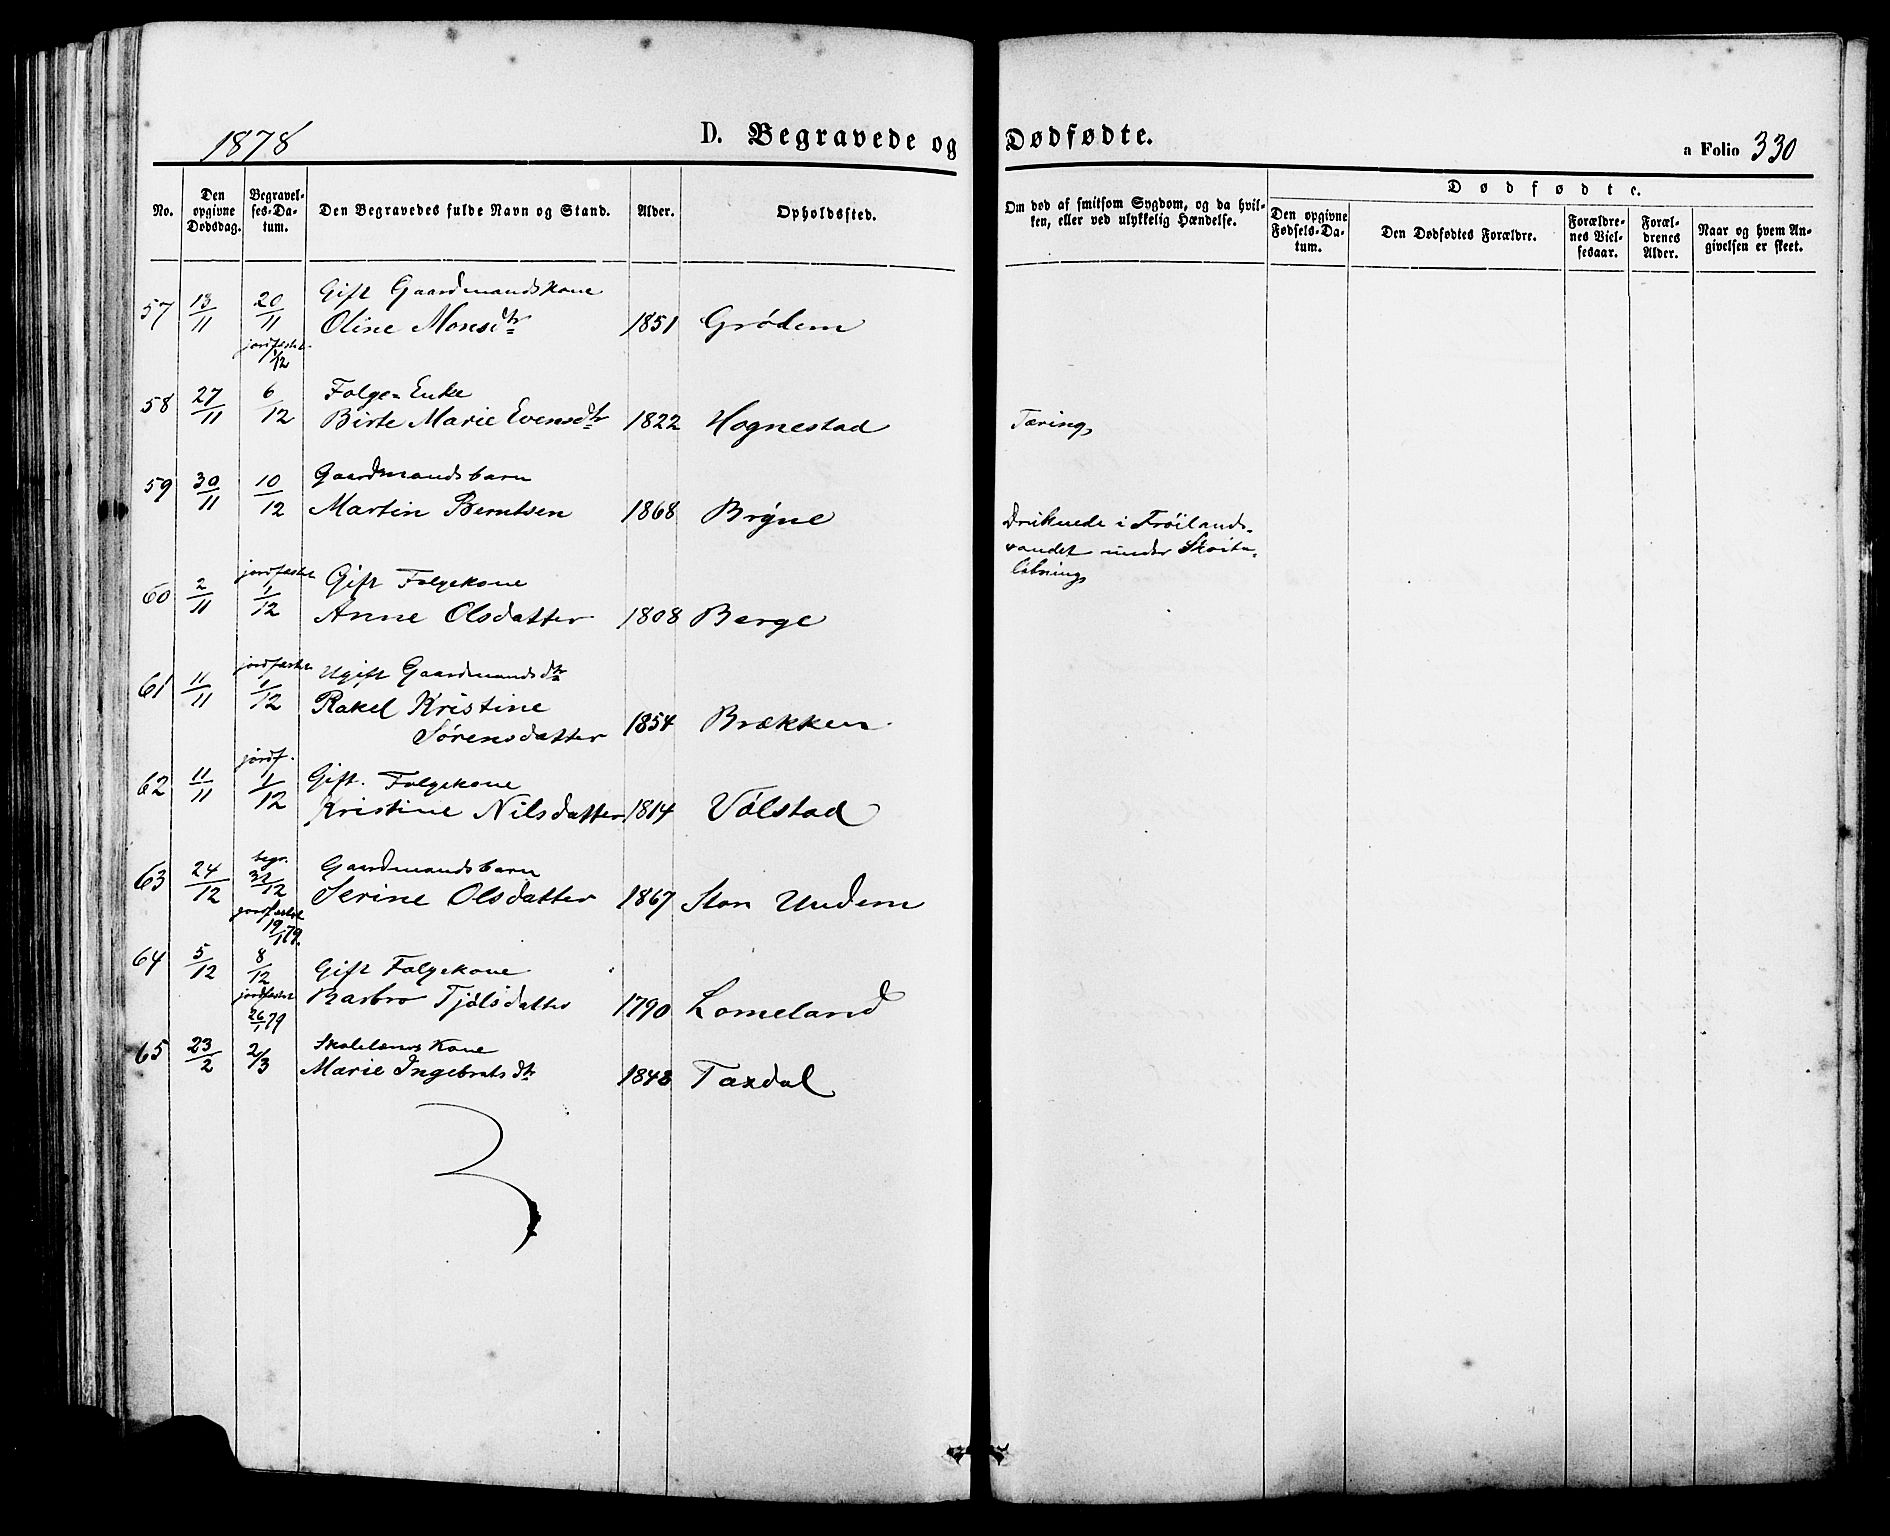 1878
D. Begravede og Dødfødte.
a Folio 330
No.
Den opgivne Dødsdag.
Begravelses-Datum.
Den Begravedes fulde Navn og Stand.
Alder.
Opholdssted.
Om død af smitsom Sygdom, og da hvilken, eller ved ulykkelig Hændelse.
Dødfødte.
Den opgivne Fødsels-Datum.
Den Dødfødtes Forældre.
Forældrenes Vielsesaar.
Forældrenes Alder.
Naar og hvem Angivelsen er skeet.
57 13/11 20/11 Gift Gaardmandskone
Oline Monsdtr 1851 Grødem
jordfæstet 1/12
58 27/11 6/12 Folge-Enke
Birte Marie Evensdtr 1822 Hognestad Tæring
59 30/11 10/12 Gaardmandsbarn
Martin Berntsen 1868 Brÿne Druknede i Frøilands-
vandet under Skøite-
løbning
60 2/11 jordfæstet 1/12 Gift Folgekone
Anne Olsdatter 1808 Berge
61 11/11 jordfæstet 1/12 Ugift Gaardmandsdtr
Rakel Kristine
Sørensdatter 1854 Brækken
62 11/11 jordf. 1/12 Gift Folgekone
Kristine Nilsdatter 1814 Vølstad
63 24/12 begr. 31/12 Gaardmandsbarn
Serine Olsdatter 1867 Stor Undem
jordfæstet 19/1 79.
64 5/12 8/12 Gift Folgekone
Barbro Tjølsdatter 1790 Lomeland
jordfæstet 26/1 79
65 23/2 2/3 Skolelærers Kone
Marie Ingebretsdtr 1848 Taxdal